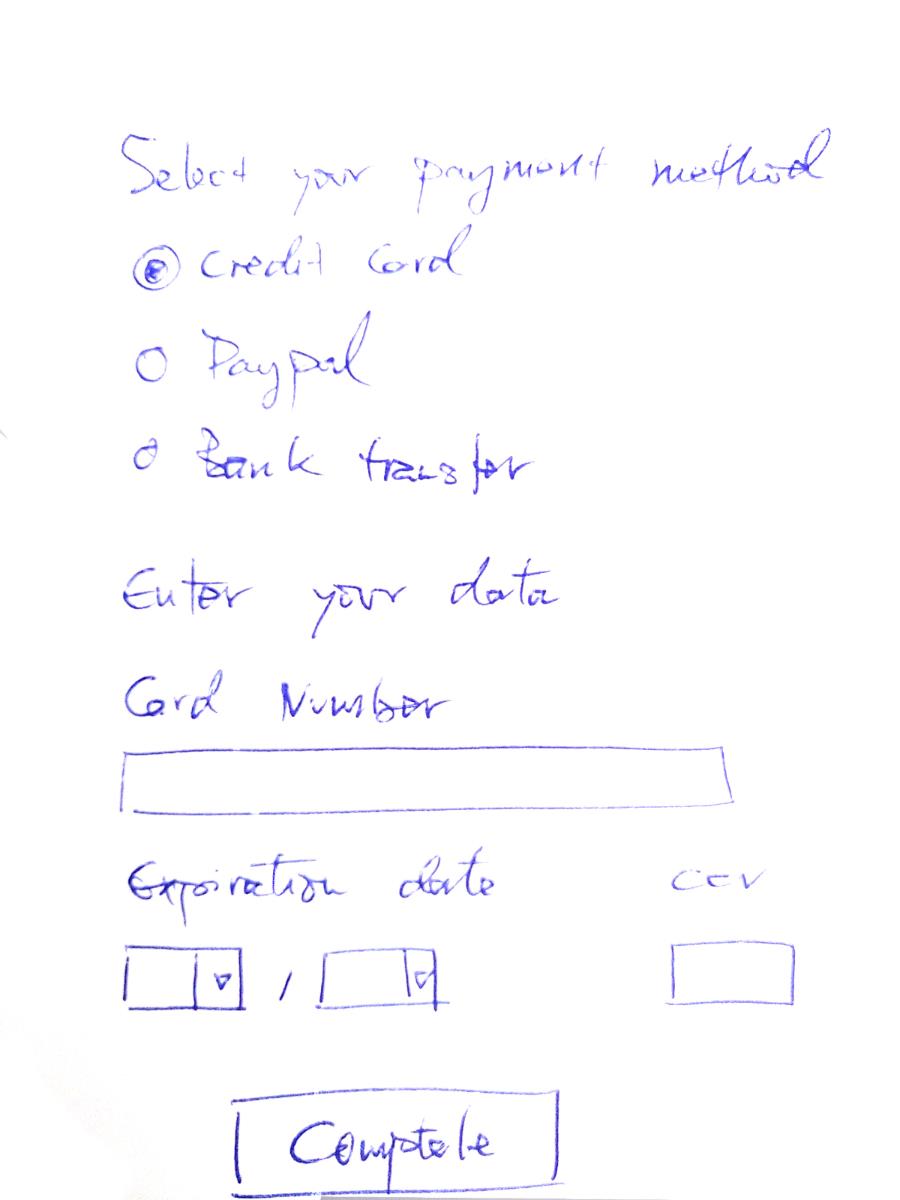 Select your payment method
Credit Card
Paypal
Bank transfer
Enter your data
Card Number
Expiration date CCV
/
Complete